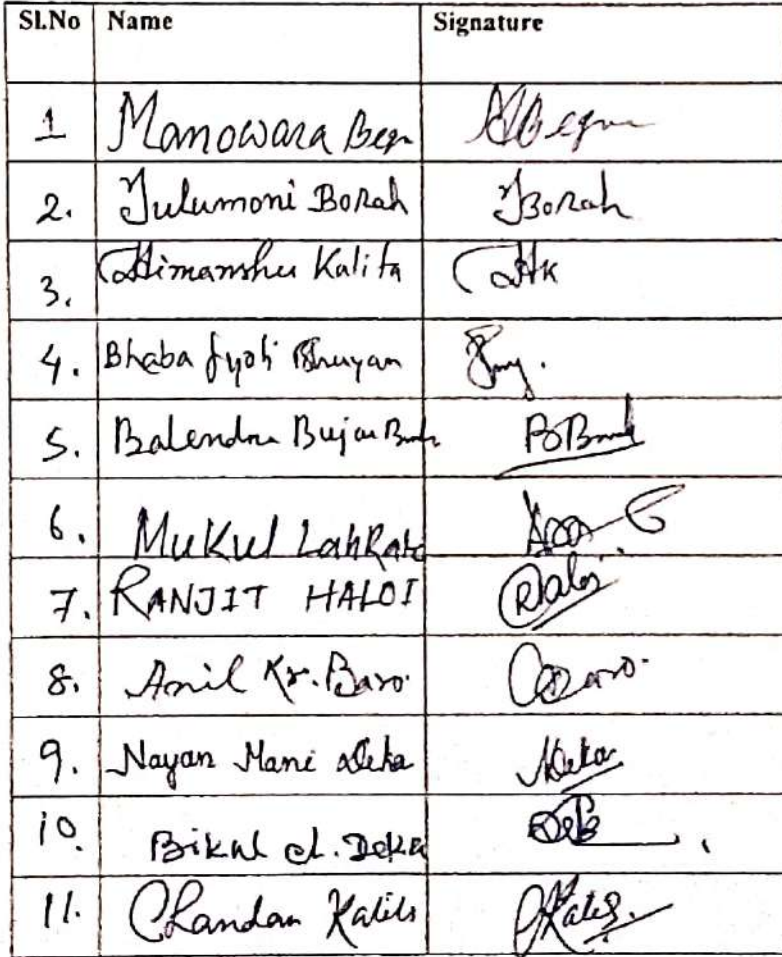 Sl.No Name Signature
1 Manowara Begn MBegn
2. Julumoni Borah JBorah
3. Himanshu Kalita HK
4. Bhaba Jyoti Bhuyan
5. Balendra Bujar
6. Mukul Lahkar
7. RANJIT HALOI RHaloi
8. Anil Kr. Baro. Baro.
9. Nayan Mani Deka NDeka
10. Bikul ch. Deka
11. Chandan Kalita